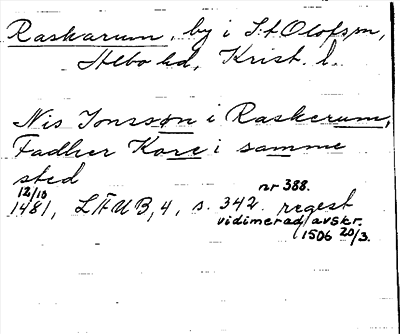 Raskarum, by i S:t Olofs sn,
Albo hd, Krist. l.
Nis Jonsson i Raskerum,
Fadher Kore i samme
sted
12/10 nr 388.
1481, LÄUB, 4, s. 342. regest
vidimerad avskr.
1506 20/3.